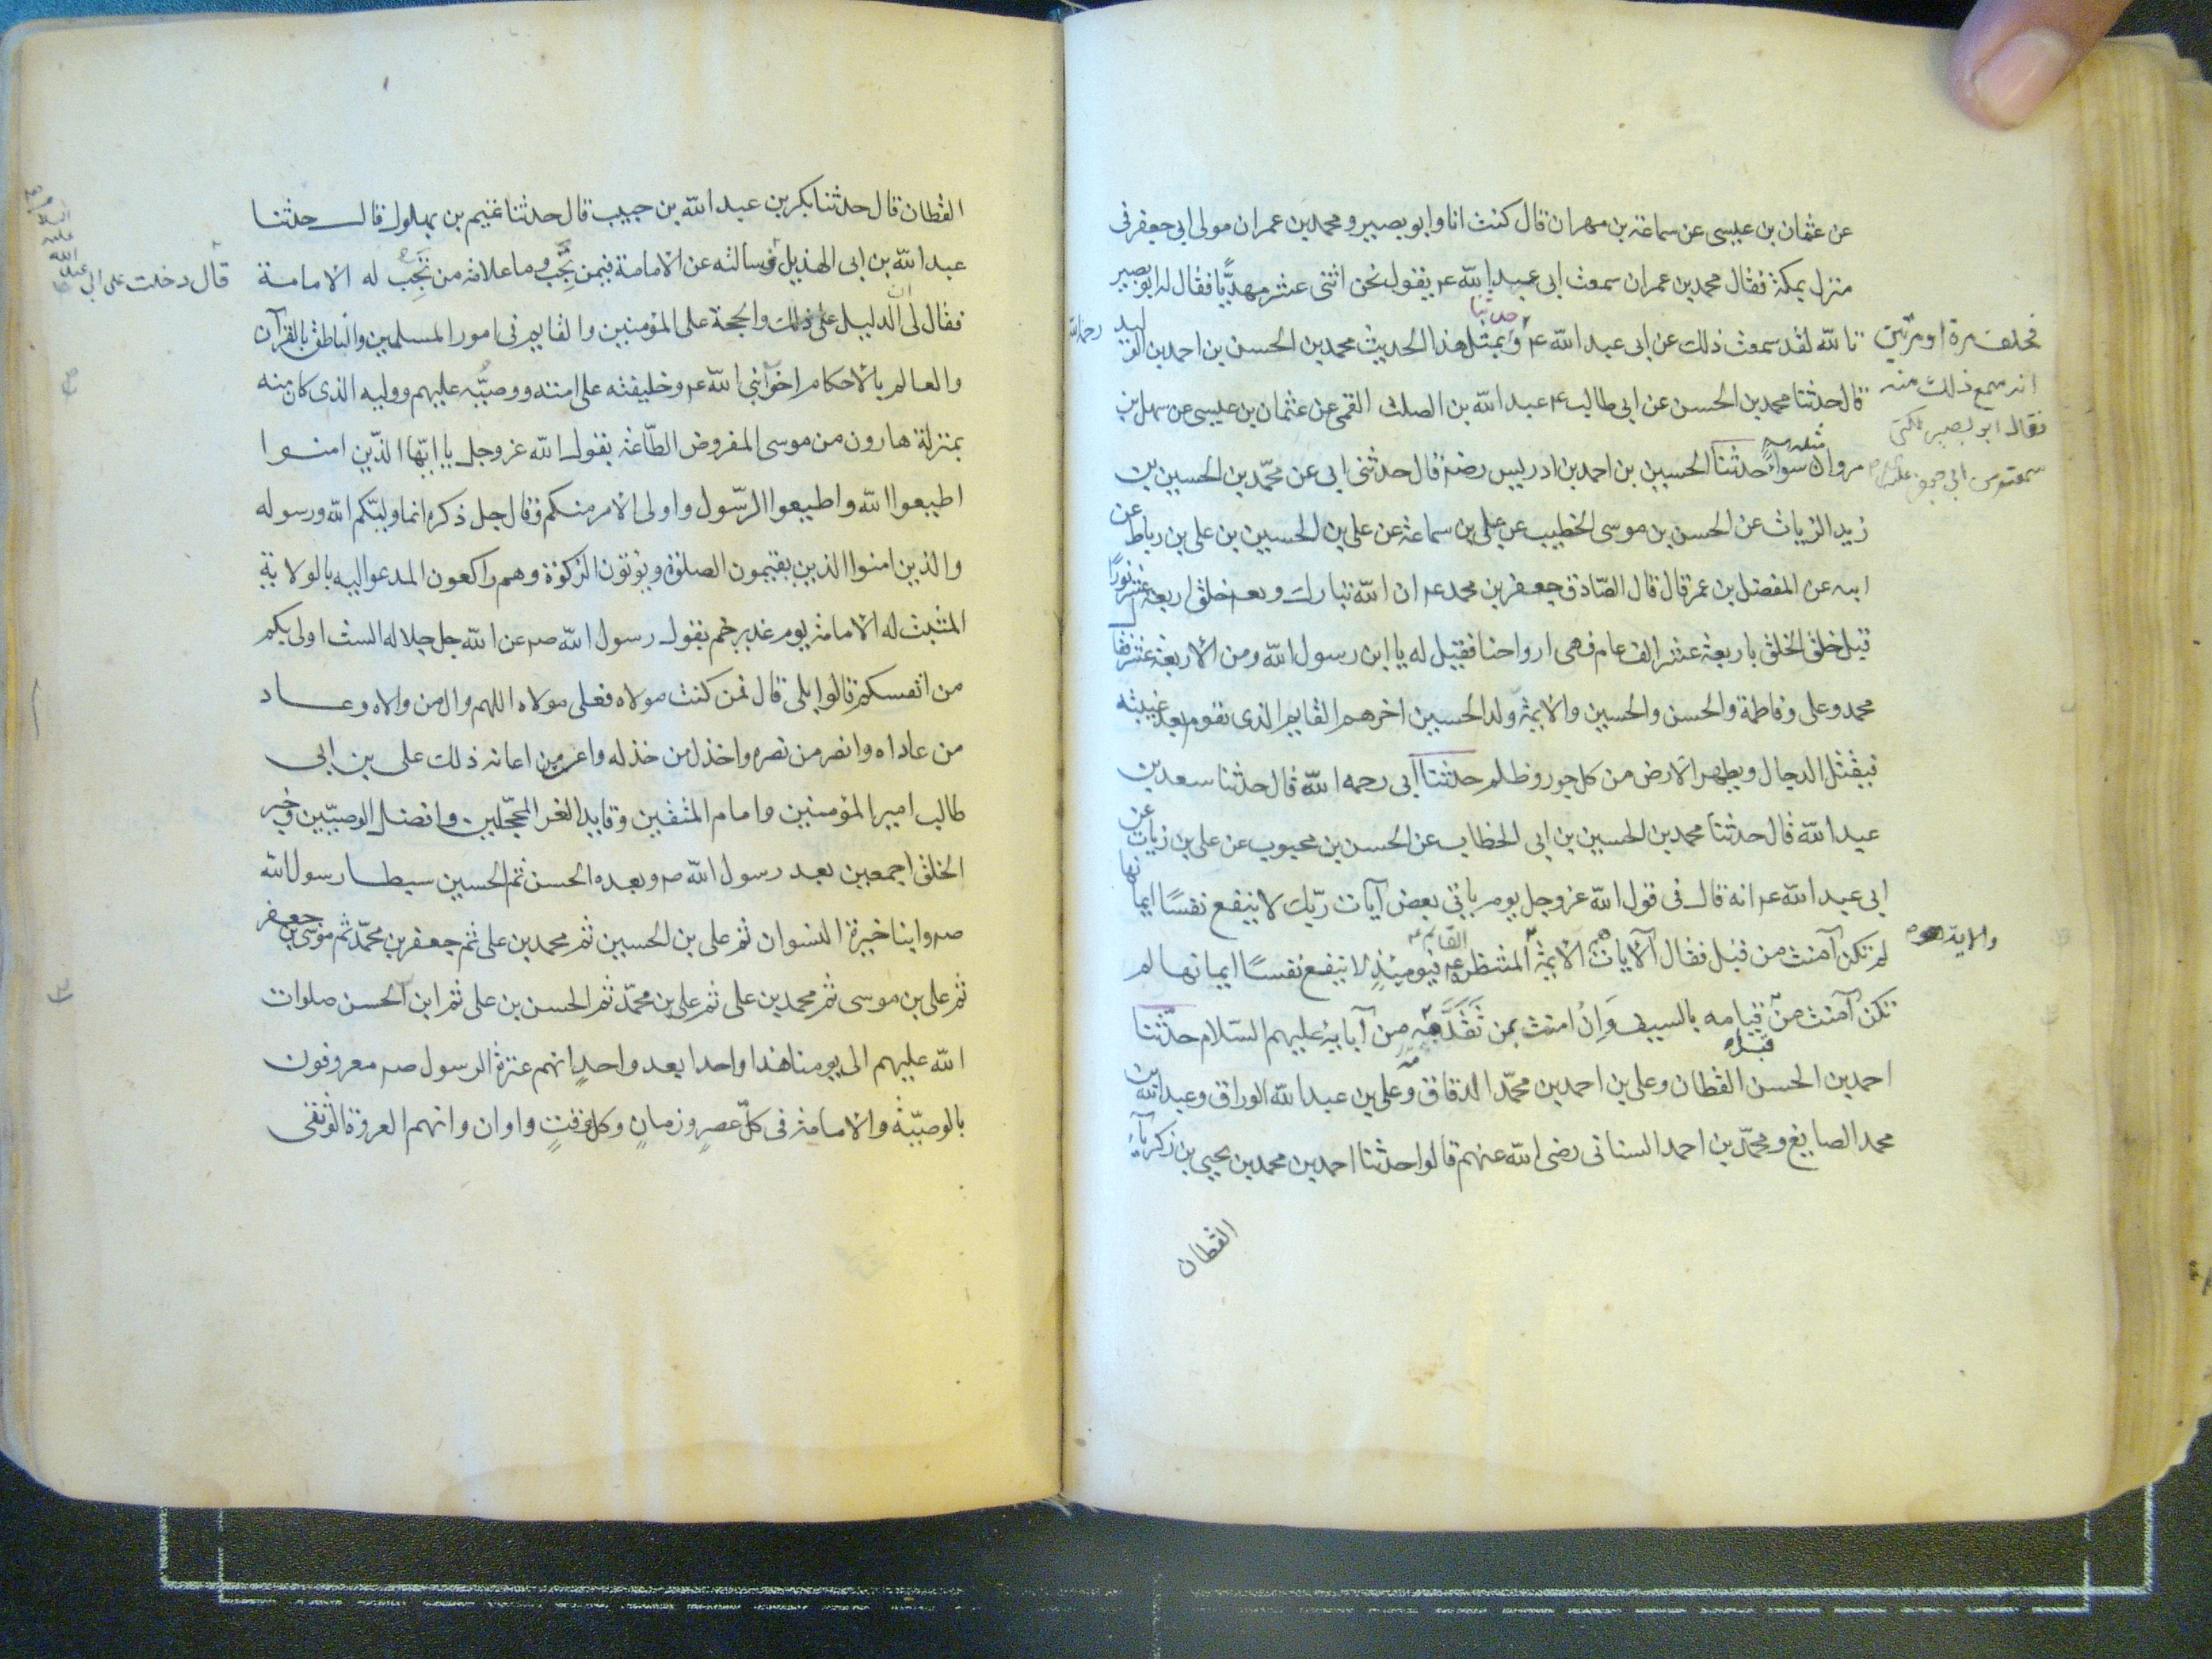 عن عثمان بن عيسى عن سماعة بن مهران قال كنت انا وابو بصير ومحمد بن عمران مولى ابي جعفر في
منزل بمكة فقال محمد بن عمران سمعت ابى عبد الله ع يقول نحن اثنى عشر مهديًّا فقال له ابو بصير
تالله لقد سمعت ذلك عن ابى عبد الله ع وبمثل هذا الحديث محمد بن الحسن بن احمد بن الوليد رحمه الله
حدثنا
فحلف مرة او مرتين
انه سمع ذلك منه
فقال ابو بصير لكني
سمعته من ابي جعفر عليه السلام
قال حدثنا محمد بن الحسن عن ابى طالب ع عبد الله بن الصلت القمى عن عثمان بن عيسى عن سهل بن
مروان مثله سواء حدثنا الحسين بن احمد بن ادريس رضه قال حدثنى ابى عن محمّد بن الحسين بن
زيد الزيات عن الحسن بن موسى الخطيب عن على بن سماعة عن على بن الحسين بن على بن رباط عن
ابيه عن المفضل بن عمر قال قال الصّادق جعفر بن محمد ع ان الله تبارك وتعه خلق اربعة عشر نورًا
قبل خلق الخلق باربعة عشر الف عام فهى ارواحنا فقيل له يا ابن رسول الله ومن الاربعة عشر فقا
محمد وعلى وفاطمة والحسن والحسين والايمّة ولد الحسين اخرهم القايم الذى يقوم بعد غيبته
فيقتل الدجال ويطهر الارض من كل جور وظلم حدثنا ابى رحمه الله قال حدثنا سعد بن
عبد الله قال حدثنا محمد بن الحسين بن ابى الخطاب عن الحسن بن محبوب عن على بن زياب عن
ابى عبد الله ع انه قال فى قول الله عز وجل يوم ياتى بعض آيات ربّك لا ينفع نفسًا ايمانها
لم تكن آمنت من قبل فقال الآيات الايمّة المنتظر القايم ع فيومئذٍ لا ينفع نفسًا ايمانها لم
والاية
تكن آمنت من قبل قيامه بالسيف وَاِن امنت بمن تَقَدَّمه من آبايه عليهم السّلام حدّثنا
احمد بن الحسن القطان وعلى بن احمد بن محمّد الدقاق وعلى بن عبد الله الوراق وعبد الله بن
محمد الصايغ ومحمّد بن احمد السنانى رضى الله عنهم قالوا حدثنا احمد بن محمد بن يحيى بن زكريآ
القطان
القطان قال حدثنا بكر بن عبد الله بن حبيب قال حدثنا تميم بن بهلول قال حدثنا
عبد الله بن ابى الهذيل وسالته عن الامامة فيمن تجب وما علامة من تجب له الامامة
قال دخلت على ابى عبد الله عليه السلام
فقال لى ان الدليل على ذلك والحجة على المؤمنين والقايم فى امور المسلمين والناطق بالقرآن
والعالم بالاحكام اخو نبى الله ع وخليفته على امته ووصيّه عليهم ووليه الذى كان منه
بمنزلة هارون من موسى المفروض الطّاعة بقول الله عز وجل يا ايّها الذّين امنوا
اطيعوا الله واطيعوا الرّسول واولى الامر منكم وقال جل ذكره انما وليّكم الله ورسوله
والذين امنوا الذين يقيمون الصلوٰة ويؤتون الزكوٰة وهم راكعون المدعو اليه بالولاية
المثبت له الامامة يوم غدير خم بقول رسول الله ص عن الله جل جلاله الست اولى بكم
من انفسكم قالوا بلى قال فمن كنت مولاه فعلى مولاه اللهم وال من والاه وعاد
من عاداه وانصر من نصره واخذل من خذله واعن من اعانه ذلك على بن ابى
طالب امير المؤمنين وامام المتقين وقايد الغر المحجّلين وافضل الوصيّين وخير
الخلق اجمعين بعد رسول الله ص وبعده الحسن ثم الحسين سبطا رسول الله
ص وابنا خيرة النسوان ثم على بن الحسين ثم محمد بن على ثم جعفر بن محمّد ثم موسى بن جعفر
ثم على بن موسى ثم محمد بن على ثم على بن محمّد ثم الحسن بن على ثم ابن الحسن صلوات
الله عليهم الى يومنا هذا واحدا بعد واحدٍ انهم عترة الرسول ص معروفون
بالوصيّة والامامة فى كلّ عصرٍ وزمانٍ وكل وقتٍ واوان وانهم العروة الوثقى